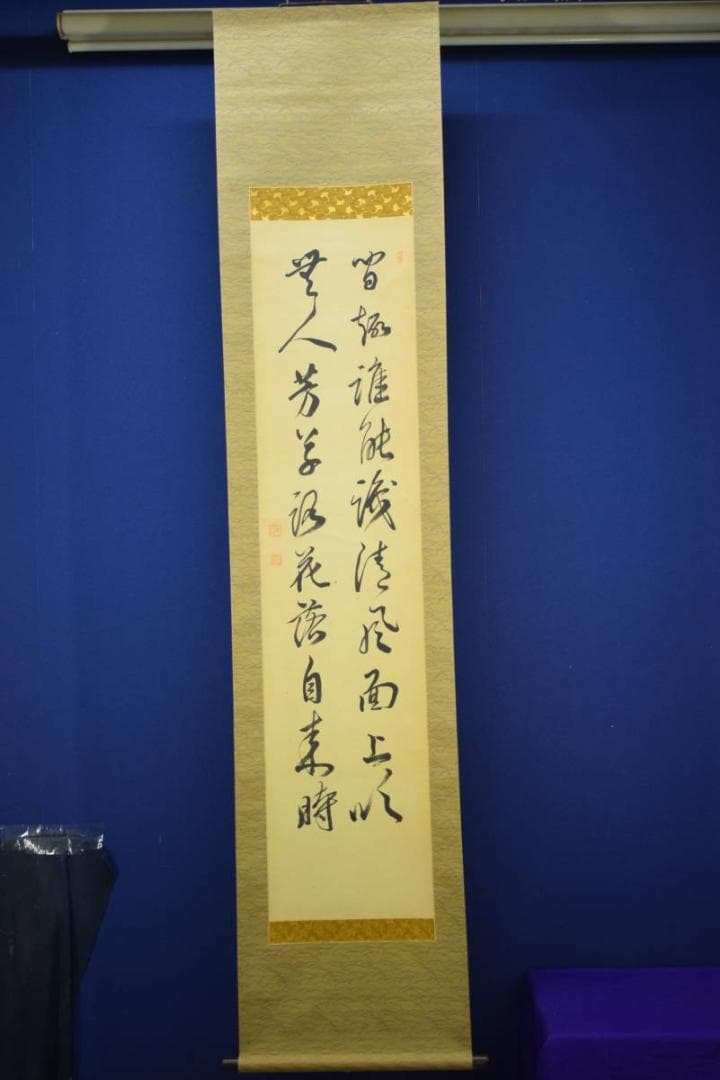 間趣誰能識清風面上吹
無人芳草路花落自来時